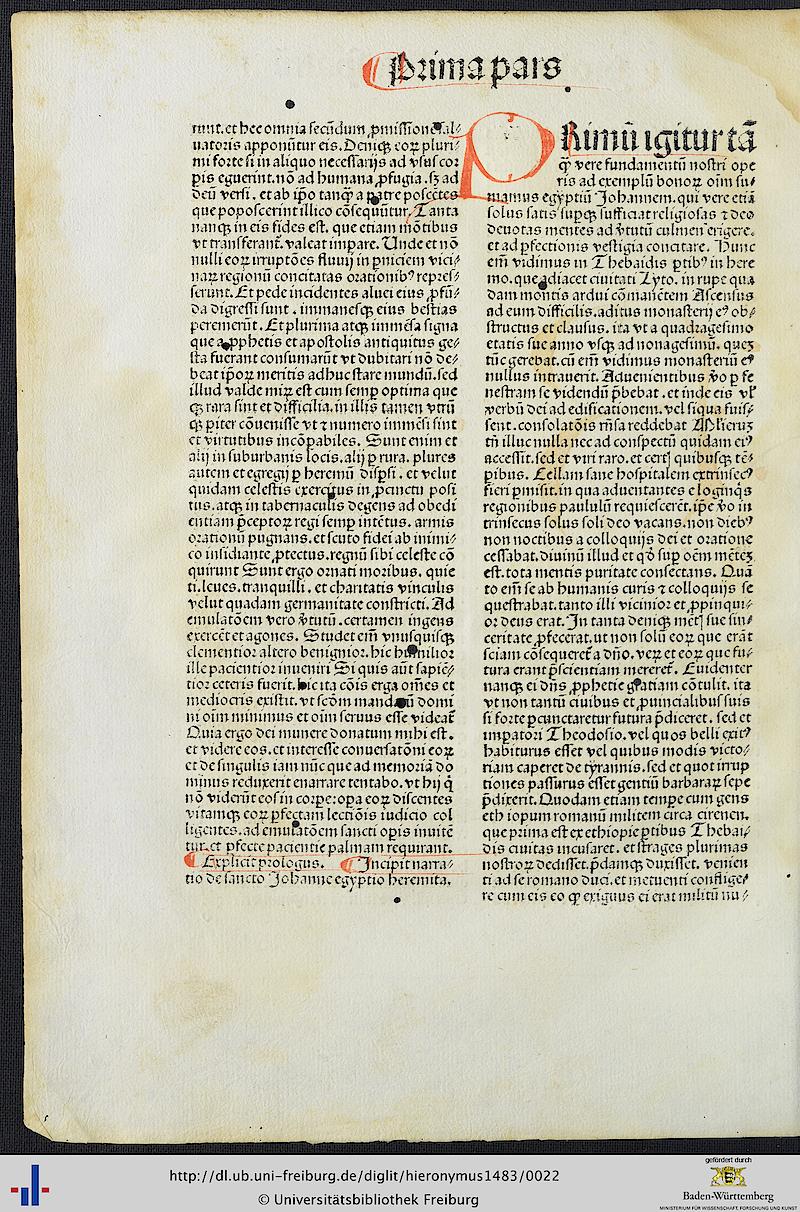 Prima pars
runt. et hec omnia secūdum ꝓmissionē sal⸗
uatoris apponūtur eis. Deniqꝫ eoꝝ pluri⸗
mi forte si in aliquo necessarijs ad vsus cor
ꝑis eguerint. nō ad humana ꝓfugia. sꝫ ad
deū versi. et ab ip̄o tanqꝫ̄ a patre poscētes
que poposcerint illico cōsequūtur. Tanta
nanqꝫ in eis fides est. que etiam mōtibus
vt transferant᷑. valeat impare. Unde et nō
nulli eoꝝ irruptōes fluuij in ꝑniciem vici⸗
naꝝ regionū concitatas orationibꝰ repres⸗
serunt. Et pede incidentes aluei eius ꝓfū⸗
da digressi sunt. immanesqꝫ eius bestias
peremerūt. Et plurima atqꝫ immēsa signa
que a ꝓphetis et apostolis antiquitus ge⸗
sta fuerant consumarūt vt dubitari nō de⸗
beat ip̄oꝝ meritis adhuc stare mundū. sed
illud valde miꝝ est cum semꝑ optima que
qꝫ rara sint et difficilia. in illis tamen vtrū
qꝫ ꝑiter cōuenisse vt ⁊ numero immēsi sint
et virtutibus incōꝑabiles. Sunt enim et
alij in suburbanis locis. alij ꝑ rura. plures
autem et egregij ꝑ heremū disꝑsi. et velut
quidam celestis exercitus in ꝓcinctu posi
tus. atqꝫ in tabernaculis degens ad obedi
entiam p̄ceptoꝝ regi semꝑ intētus. armis
orationū pugnans. et scuto fidei ab inimi⸗
co insidiante ꝓtectus. regnū sibi celeste cō
quirunt Sunt ergo ornati moribus. quie
ti. leues. tranquilli. et charitatis vinculis
velut quadam germanitate constricti. Ad
emulatōem vero v̄tutū. certamen ingens
exercēt et agones. Studet em̄ vnusquisqꝫ
clementior altero benignior. hic humilior
ille pacientior inueniri Si quis aūt sapiē⸗
tior ceteris fuerit. hic ita cōis erga om̄es et
mediocris existit. vt scōm mandatū domi
ni oīm minimus et oīm seruus esse videat᷑
Quia ergo dei munere donatum mihi est.
et videre eos. et interesse conuersatōni eoꝝ
et de singulis iam nūc que ad memoriā do
minus reduxerit enarrare tentabo. vt hij q̄
nō viderūt eos in corpore: opa eoꝝ discentes
vitamqꝫ eoꝝ ꝑfectam lectiōis iudicio col
ligentes. ad emulatōem sancti opis inuitē
tur. et ꝑfecte pacientie palmam requirant.
Explicit prologus. Incipit narra⸗
tio de sancto Johanne egyptio heremita.
PRimū igitur tā
qꝫ̄ vere fundamentū nostri ope
ris ad exemplū bonoꝝ oīm su⸗
mamus egyptiū Johannem. qui vere etiā
solus satis suꝑqꝫ sufficiat religiosas ⁊ deo
deuotas mentes ad v̄tutū culmen erigere.
et ad ꝑfectionis vestigia concitare. Hunc
em̄ vidimus in Thebaidis ꝑtibꝰ in here
mo. que adiacet ciuitati Lyto. in rupe qua
dam montis ardui cōmanētem Ascensus
ad eum difficilis. aditus monasterij eꝰ ob⸗
structus et clausus. ita vt a quadragesimo
etatis sue anno vsqꝫ ad nonagesimū. queꝫ
tūc gerebat. cū em̄ vidimus monasteriū eꝰ
nullus intrauerit. Aduenientibus v̄o ꝑ fe
nestram se videndū p̄bebat. et inde eis vl̓
verbū dei ad edificationem. vel siqua fuis⸗
sent. consolatōis rn̄sa reddebat Mulieruꝫ
tn̄ illuc nulla nec ad conspectū quidam eiꝰ
accessit. sed et viri raro. et certꝭ quibusqꝫ tē⸗
ꝑibus. Cellam sane hospitalem extrinsecꝰ
fieri ꝑmisit. in qua aduentantes e loginqͥs
regionibus paululū requiescerēt. ip̄e v̄o in
trinsecus solus soli deo vacans. non diebꝰ
non noctibus a colloquijs dei et oratione
cessabat. diuinū illud et qd̓ suꝑ oēm mēteꝫ
est. tota mentis puritate consectans. Quā
to em̄ se ab humanis curis ⁊ colloquijs se
questrabat. tanto illi vicinior et ꝓpinqui⸗
or deus erat. In tanta deniqꝫ mētꝭ sue sin⸗
ceritate ꝓfecerat. ut non solū eoꝝ que erāt
sciam cōsequeret᷑ a dn̄o. veꝝ et eoꝝ que fu⸗
tura erant p̄scientiam mereret᷑. Euidenter
nanqꝫ ei dn̄s ꝓphetie gratiam cōtulit. ita
vt non tantū ciuibus et ꝓuincialibus suis
si forte ꝑcunctaretur futura p̄diceret. sed et
imꝑatori Theodosio. vel quos belli exitꝰ
habiturus esset vel quibus modis victo⸗
riam caperet de tyrannis. sed et quot irrup
tiones passurus esset gentiū barbaraꝝ sepe
p̄dixerit. Quodam etiam temꝑe cum gens
ethiopum romanū militem circa cirenen.
que prima est ex ethiopie ꝑtibus Thebai⸗
dis ciuitas incusaret. et strages plurimas
nostroꝝ dedisset. p̄damqꝫ duxisset. venien
ti ad se romano duci. et metuenti conflige⸗
re cum eis eo qꝫ̄ exiguus ei erat militū nu⸗
http://dl.ub.uni-freiburg.de/diglit/hieronymus1483/0022
© Universitätsbibliothek Freiburg
gefördert durch
Baden-Württemberg
MINISTERIUM FÜR WISSENSCHAFT, FORSCHUNG UND KUNST